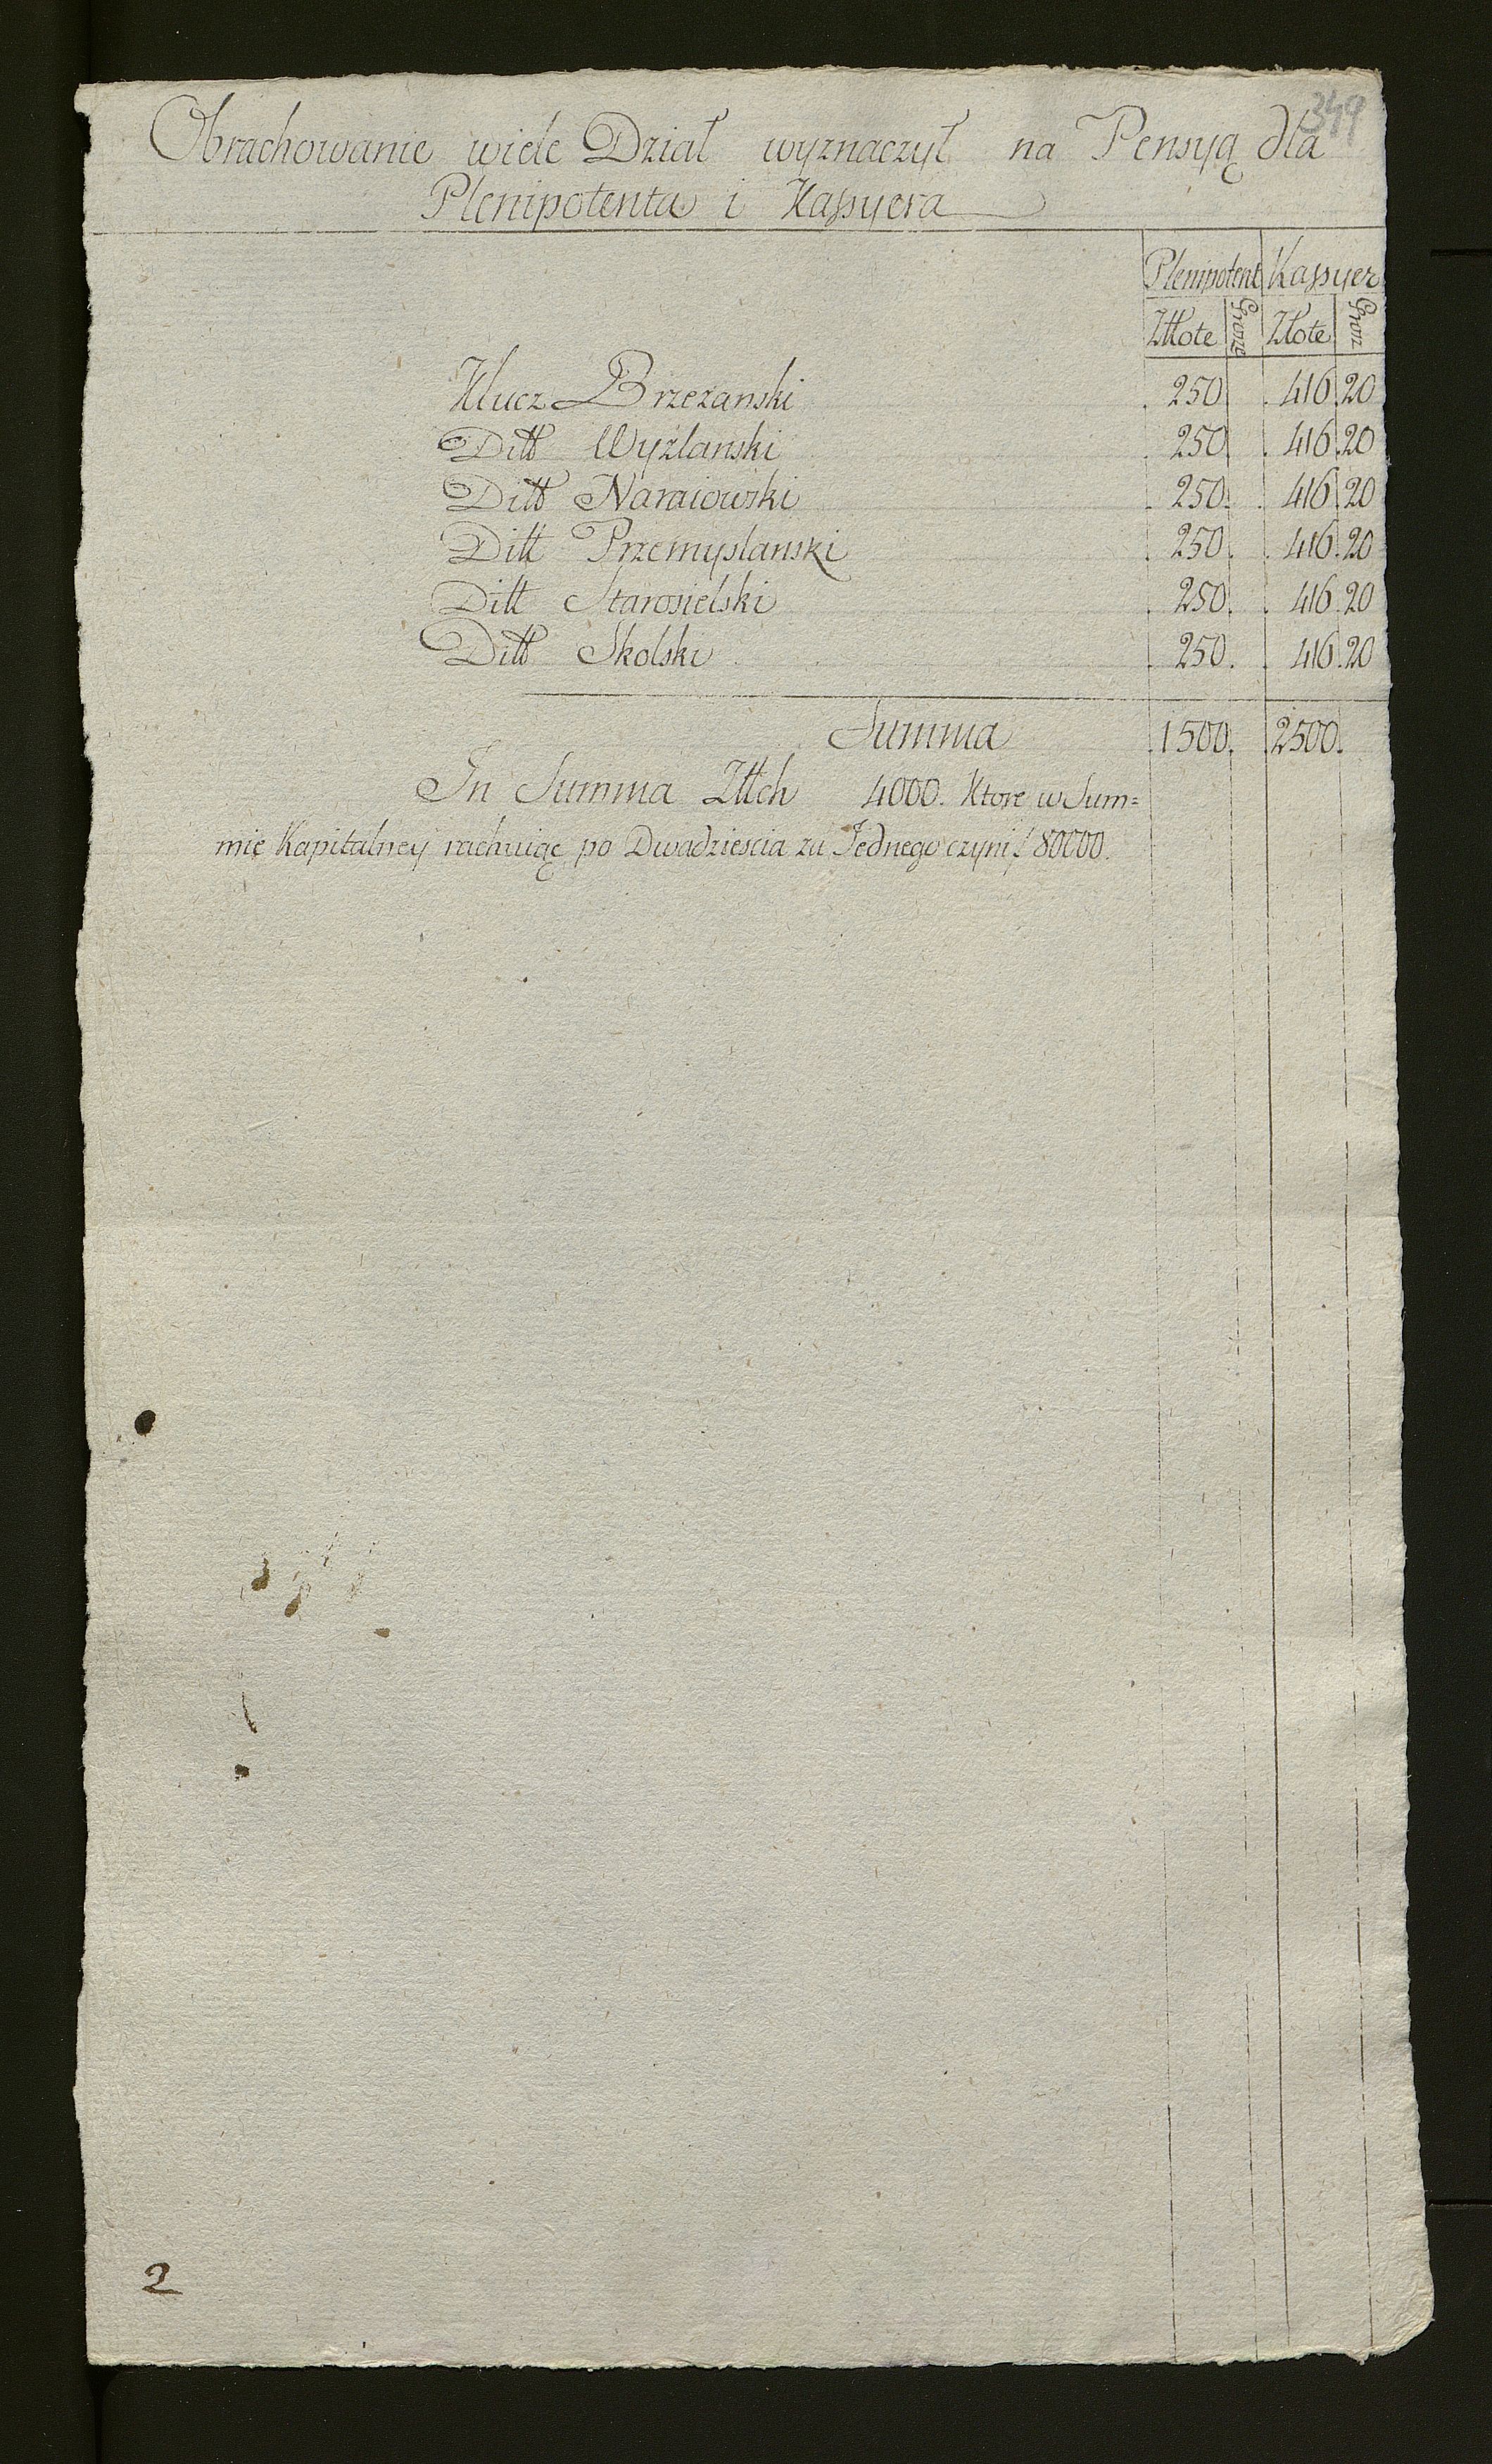 349
Obrachowanie wiele Dział wyznaczył na Pensyą dla
Plenipotenta i Kassyera
Plenipotent Kassyer
Złłote Grosze Złote Grosz
Klucz Brzezanski 250. 416.20
Ditt Wyżlanski 250. 416.20
Ditt Naraiowski 250. 416.20
Ditt Przemyslanski 250. 416.20
Ditt Starosielski 250. 416.20
Ditt Skolski 250. 416.20
Summa 1500. 2500.
In Summa Złłch 4000. Ktore w Sum=
mie Kapitalney rachuiąc po Dwadziescia za Jednego czyni f 80000.
2